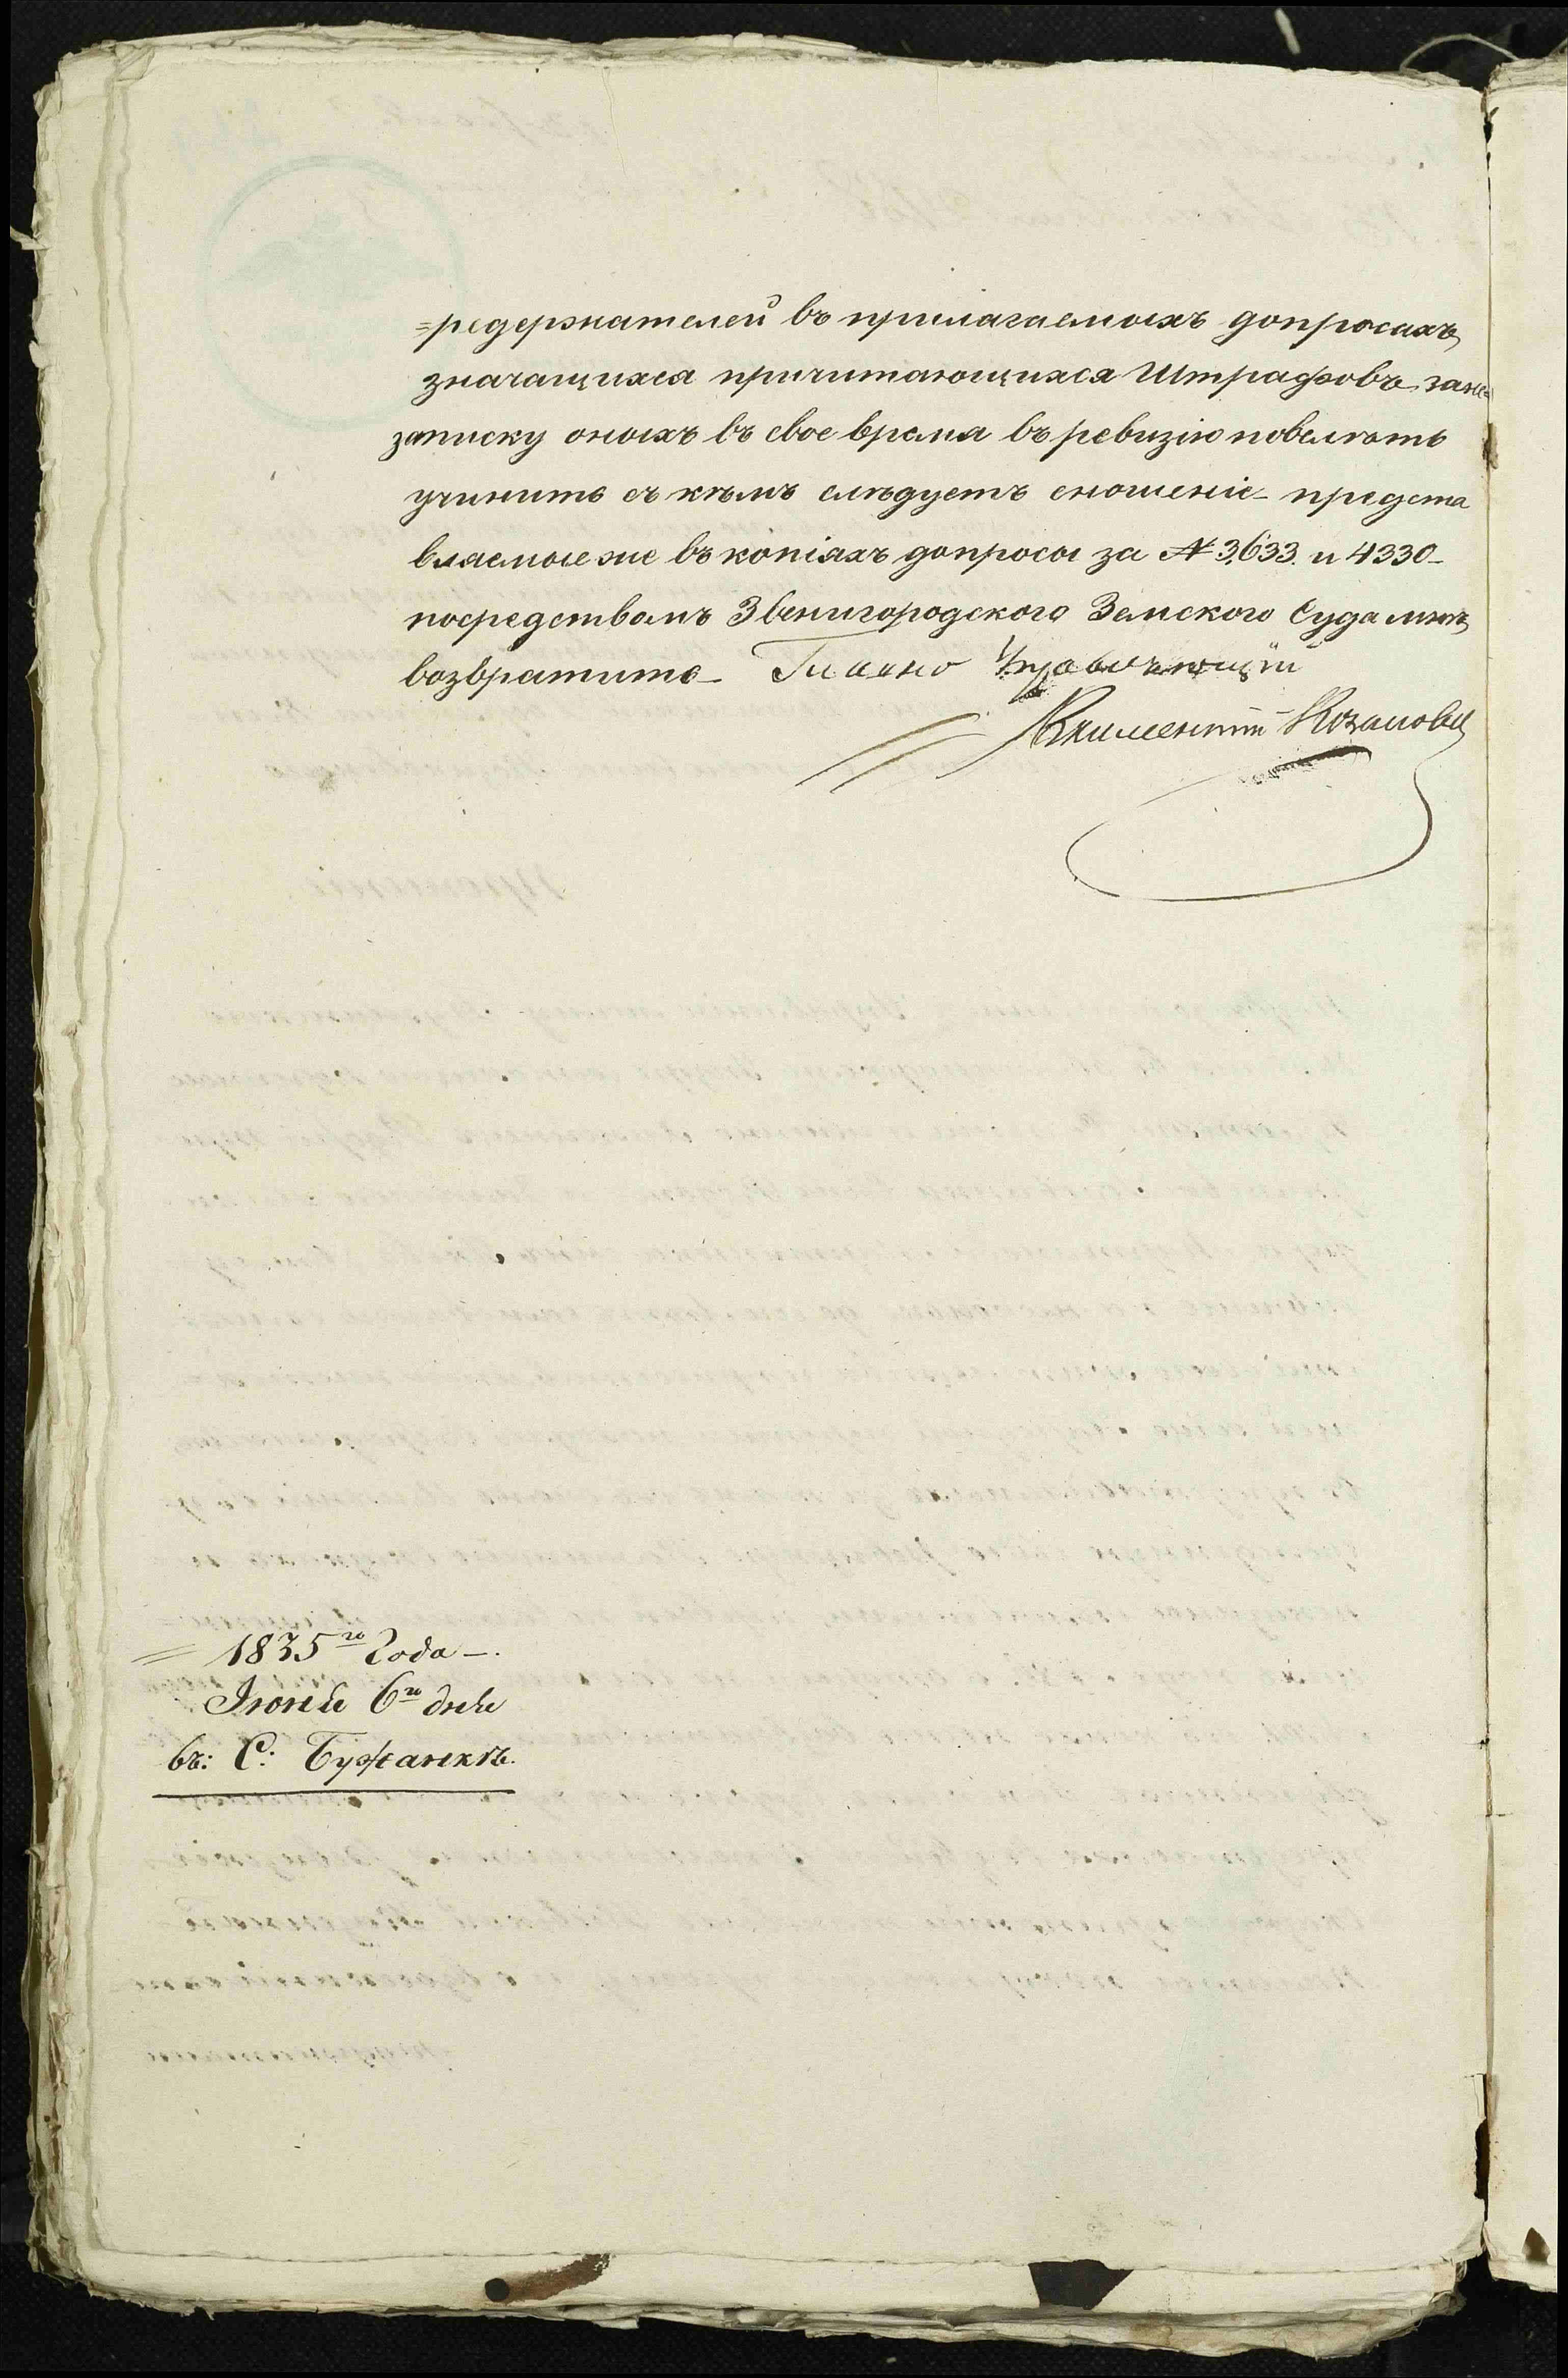 =редержателей въ прилагаемыхъ допросахъ
значащихся причитающихся Штрафовъ за не=
записку оныхъ въ свое время въ ревизію повелѣть
учинить съ кѣмъ слѣдуетъ сношеніе – предста
вляемые же въ копіяхъ допросы за № 3,633. и 4330 –
посредствомъ Звенигородского Земского Суда мнѣ
возвратить – Главно Управляющій
Климентій Козаловъ
= 1835го Года –.
Іюня 6го дня
въ: С: Бужанкѣ.